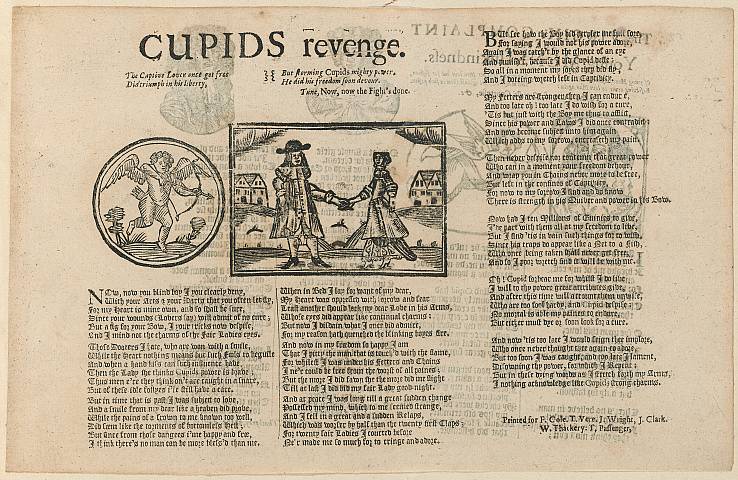 CUPIDS revenge.
The Captive Lover once got free
Did triumph in his liberty,
But storming Cupids mighty power,
He did his freedom soon devour.
Tune, Now, now the Fight's done.
NOw, now you blind boy I you clearly deny,
With your Arts & your Darts that you often let fly,
For my Heart is mine own, and so shall be sure,
Since your wounds (Lovers say) will admit of no cure;
But a fig for your Bow, I your tricks now despise,
And I mind not the charms of the Fair Ladies eyes.
Those Doaters I hate, who are won with a smile,
While the heart nothing means but such Fools to beguile
And when a hand
Then the Lady she thinks Cupids power is divine
Thus men are they think on't are caught in a snare,
But of these idle follyes I'le still take a care.
But in time that is past I was subject to love,
And a smile from my dear like a frozen did move,
While the pains of a frown to me known too well,
Did seem like the torments of bottomless Hell;
But since from those dangers i'me happy and free,
I think there's no man can be more bless'd than me.
When in Bed I lay for want of my dear,
My heart was oppress'd with sorrow and fear
Least another should seek my dear Love in his Arms,
Whose eyes did appear like continual charms:
But now I disdain what I once did admire,
For my reason hath quenched the blinding loves fire.
And now in my freedom so happy I am
That I pitty the man that is touc'd with the flame,
For whilest I was under his Fetters and Chains
I ne're could be free from the worst of all pains;
But the more I did fawn the the more did me slight
Till at last I did bid my fair Lady good-night.
And at peace I was long till a great sudden change
Possessed my mind, which to me seemed strange,
And I fell in a great and a sudden relaps,
Which was worser by half than the twenty first Claps;
For twenty fair Ladies I courted before
Ne'r made me so much for to cringe and adore.
But see how the Boy did
For saying I would not his power adore,
Again I was catch't by the glance of an eye
And punish't, because I did Cupid defie:
So all in a moment my joyes they did fly,
And I doteing wretch left in Captivity.
My Fetters are stronger then I can endure,
And too late oh! too late I do wish for a cure,
'Tis but just with the Boy me thus to afflict,
Since his power and Laws I did once contradict:
And now become subject unto him again
Which adds to my sorrow, encreaseth my pain.
Then never despise nor contemn that great power
Who can in a moment your freedom devour,
And whip you in Chains never more to be free,
But left in the confines of Captivity,
For now to my sorrow I find and do know
There is strength in his Quiver and power in his Bow.
Now had I ten Millions of Guinies to give,
I'de part with them all at my freedom to live,
But I find 'tis in vain such things for to wish,
Since his traps do appear like a Net to a Fish,
Who once being taken shall never get free,
And so I poor wretch find it will be with me.
Oh! Cupid release me for whilst I do live;
I will to thy power great attributes give,
And after this time will all men advice,
Who are no fool-hardy, and Cupid despise:
No mortal is able my paines to endure,
But either must dye or soon look for a cure.
And now 'tis too late I would feign thee implore,
Who once never thought to love again to adore,
But too soon I was caught, and too late I lament,
Disowning thy power, for which I Repent:
But in these dying words as I stretch forth my Arms,
I nothing acknowledge like Cupids strong charms.
Printed for F. Cole, T. Vere, J. Wright, J. Clark.
W. Thackery, T. Passenger,